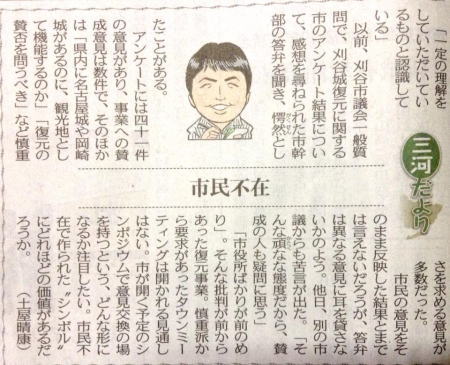 三河だより
市民不在
「一定の理解を
していただいてい
るものと認識して
いる」
以前、刈谷市議会一般質
問で、刈谷城復元に関する
市のアンケート結果につい
て、感想を尋ねられた市幹
部の答弁を聞き、愕然とし
たことがある。
アンケートには四十一件
の意見があり、事業への賛
成意見は数件で、そのほか
は「県内に名古屋城や岡崎
城があるのに、観光地とし
て機能するのか」「復元の
賛否を問うべき」など慎重
さを求める意見が
多数だった。
市民の意見をそ
のまま反映した結果とまで
は言えないだろうが、答弁
は異なる意見に耳を貸さな
いかのよう。他日、別の市
議からも苦言が出た。「そ
んな頑なな態度だから、賛
成の人も疑問に思う」
「市役所ばかりが前のめ
り」。そんな批判が前から
あった復元事業。慎重派か
ら要求があったタウンミー
ティングは開かれる見通し
はない。市が開く予定のシ
ンポジウムで意見交換の場
を持つという、どんな形に
なるか注目したい。市民不
在で作られた〝シンボル〟
にどれほどの価値があるだ
ろうか。　（土屋晴康）